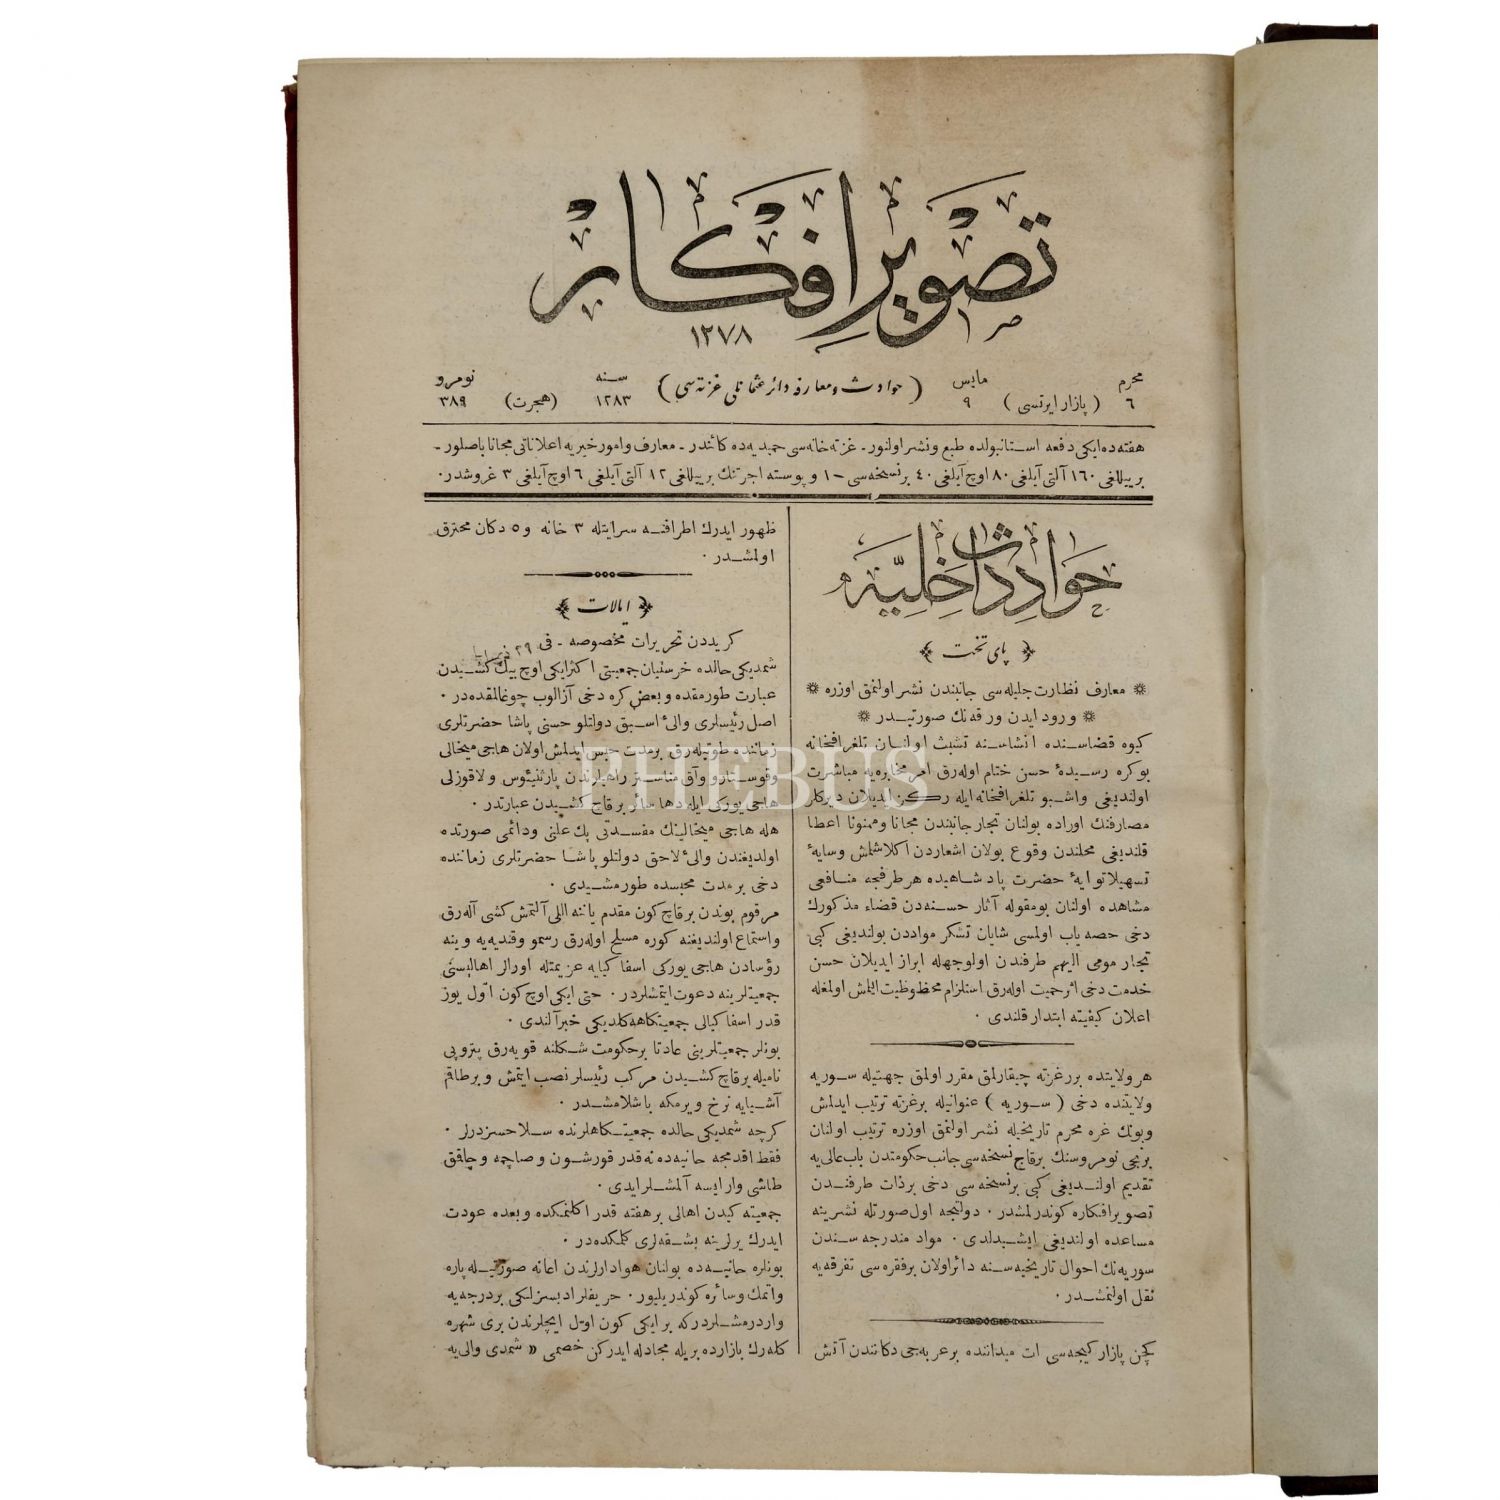 تصویر افكار
١٢٧٨
محرم ٦ (پازار ایرتسی) مایس ٩ (حوادث و معارفه دائر عثمانلی غزته‌سی) سنه ١٢٨٣ (هجرت) نومرو ٣٨٩
هفته‌ده ایكی دفعه استانبولده طبع و نشر اولنور - غزته خانه‌سی حمیدیه‌ده كائندر - معارف و امور خیریه اعلاناتی مجانا باصلور -
بر ییللغی ١٦٠ آلتی آیلغی ٨٠ اوچ آیلغی ٤٠ بر نسخه‌سی ١- و پوسته اجرتنك بر ییللغی ١٢ آلتی آیلغی ٦ اوچ آیلغی ٣ غروشدر ·
حوادث داخلیه
پای تخت
معارف نظارت جلیله‌سی جانبندن نشر اولنمق اوزره
ورود ایدن ورقه‌نك صورتیدر
كیوه قضاسنده انشاسنه تشبث اولنان تلغرافخانه
بو كره رسیدهٔ حسن ختام اوله‌رق امر مخابره‌یه مباشرت
اولندیغی و اشبو تلغرافخانه ایله ركز ایدیلان دیركلر
مصارفنك اوراده بولنان تجار جانبندن مجانا و ممنونا اعطا
قلندیغی محلندن وقوع بولان اشعاردن اكلاشلمش و سایهٔ
تسهیلاتوایهٔ حضرت پادشاهیده هر طرفجه منافعی
مشاهده اولنان بو مقوله آثار حسنه‌دن قضاء مذكورك
دخی حصه یاب اولمسی شایان تشكر مواددن بولندیغی كبی
تجار مومی الیهم طرفندن اولوجهله ابراز ایدیلان حسن
خدمت دخی اثر حمیت اوله‌رق استلزام محظوظیت ایلمش اولمغله
اعلان كیفیته ابتدار قلندی ·
هر ولایتده بر غزته چیقارلمق مقرر اولمق جهتیله سوریه
ولایتنده دخی (سوریه) عنوانیله بر غزته ترتیب ایدلمش
و بونك غره محرم تاریخیله نشر اولنمق اوزره ترتیب اولنان
برنجی نومروسنك بر قاچ نسخه‌سی جانب حكومتدن باب عالی‌یه
تقدیم اولندیغی كبی بر نسخه‌سی دخی بر ذات طرفندن
تصویر افكاره كوندرلمشدر · دولتجه اول صورتله نشرینه
مساعده اولندیغی ایشیدلدی · مواد مندرجه سندن
سوریه‌نك احوال تاریخیه سنه دائر اولان بر فقره‌سی تفرقه‌یه
نقل اولنمشدر ·
كچن پازار كیجه‌سی ات میداننده بر عربه‌جی دكانندن آتش
ظهور ایدرك اطرافنه سرایتله ٣ خانه و ٥ دكان محترق
اولمشدر ·
ایالات
كریددن تحریرات مخصوصه - فی ٢٩
شمدیكی حالده خرستیان جمعیتی اكثر ایكی اوچ بیك كشیدن
عبارت طورمقده و بعض كره دخی آزالوب چوغالمقده‌در ·
اصل رئیسلری والیٔ اسبق دولتلو حسنی پاشا حضرتلری
زماننده طوتیله‌رق بر مدت حبس ایدلمش اولان هاجی میخالی
و قوستارو و آق مناستر راهبلرندن پارثنیئوس و لاقوزلی
هاجی یوركی ایله دها سائر بر قاچ كشیدن عبارتدر ·
هله هاجی میخالینك مفسدتی پك علنی و دائمی صورتده
اولدیغندن والیٔ لاحق دولتلو پاشا حضرتلری زماننده
دخی بر مدت محبسده طورمشیدی ·
مرقوم بوندن بر قاچ كون مقدم یاننه اللی آلتمش كشی آله‌رق
و استماع اولندیغنه كوره مسلح اوله‌رق رسمو و قندیه‌یه و ینه
رؤسادن هاجی یوركی اسفاكیایه عزیمتله اورالر اهالیسنی
جمعیتلرینه دعوت ایتمشلردر · حتی ایكی اوچ كون اول یوز
قدر اسفاكیالی جمعیتكاهه كلدیكی خبر آلندی ·
بونلر جمعیتلرینی عادتا بر حكومت شكلنه قویه‌رق پتروپی
نامیله بر قاچ كشیدن مركب رئیسلر نصب ایتمش و بر طاقم
آشیایه نرخ ویرمكه باشلامشدر ·
كرچه شمدیكی حالده جمعیتكاهلرنده سلاحسزدرلر ·
فقط اقدمجه حانیه‌ده نه قدر قورشون و صاچمه و چاقق
طاشی وار ایسه آلمشلر ایدی ·
جمعیته كیدن اهالی بر هفته قدر اكلنمكده و بعده عودت
ایدرك یرلرینه بشقه‌لری كلمكده‌در ·
بونلره حانیه‌ده بولنان هوادارلرندن اعانه صورتیله پاره
و اتمك و سائره كوندریلیور · حریفلر ادبسزلكی بر درجه‌یه
واردرمشلردر كه بر ایكی كون اول ایچلرندن بری شهره
كله‌رك بازارده بریله مجادله ایدركن خصمی « شمدی والی‌یه
PHEBUS